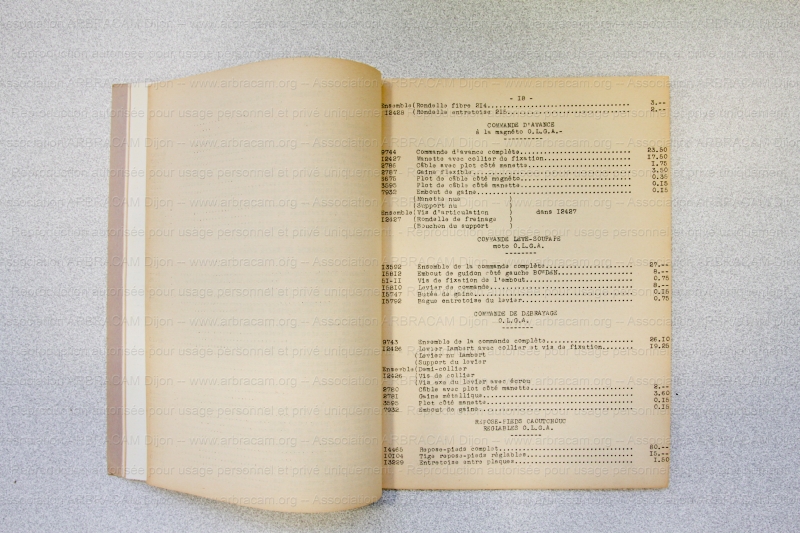 - 18 -
Ensemble (Rondelle fibre 214 3.--
12429 (Rondelle entretoise 215 2.--
COMMANDE D'AVANCE
à la magnéto O.L.G.A.-
9744 Commande d'avance complète 23.50
12427 Manette avec collier de fixation 17.50
2786 Câble avec plot côté manette 1.75
2787 Gaine flexible 3.50
3675 Plot de câble côté magnéto 0.35
3595 Plot de câble côté manette 0.15
7932 Embout de gaine 0.15
(Manette nue )
(Support nu )
Ensemble (Vis d'articulation ) dans 12427
12427 (Rondelle de freinage )
(Bouchon du support )
COMMANDE LEVE-SOUPAPE
moto O.L.G.A.
13592 Ensemble de la commande complète 27.--
15812 Embout de guidon côté gauche BOWDEN 8.--
51-11 Vis de fixation de l'embout 0.75
15810 Levier de commande 8.--
15747 Butée de gaine 0.15
15792 Bague entretoise du levier 0.75
COMMANDE DE DEBRAYAGE
O.L.G.A.
9743 Ensemble de la commande complète 26.10
12426 Levier Lambert avec collier et vis de fixation 19.25
(Levier nu Lambert
(Support du levier
Ensemble (Demi-collier
12426 (Vis de collier
(Vis axe du levier avec écrou
2780 Câble avec plot côté manette 2.--
2781 Gaine métallique 3.60
3595 Plot côté manette 0.15
7932 Embout de gaine 0.15
REPOSE-PIEDS CAOUTCHOUC
REGLABLES O.L.G.A.
14465 Repose-pieds complet 60.--
10104 Tige repose-pieds réglables 15.--
13229 Entretoise entre plaques 1.50